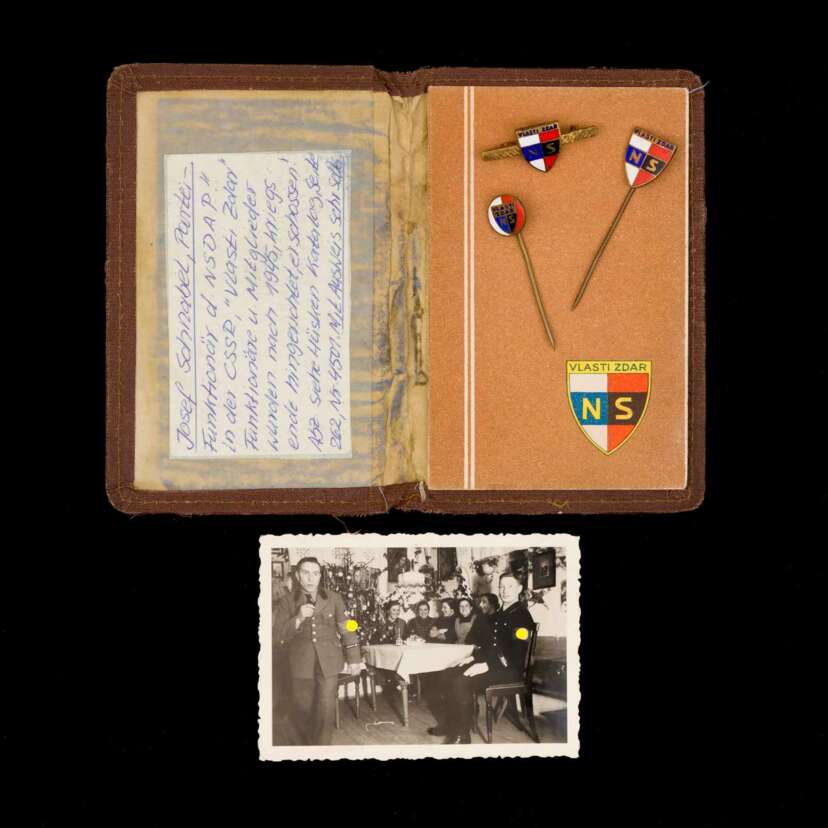 Josef Schnabel, Partei-
Funktionär d. NSDAP."
in der CSSR, "Vlasti Zdar"
Funktionäre u. Mitglieder
wurden nach 1945, Kriegs-
ende hingerichtet, erschossen!
Abz. siehe Hüsken Katalog, Seite
262, Nr. Mit Ausweis sehr
VLASTI ZDAR
NS
VLASTI ZDAR
NS
VLASTI
ZDAR
NS
VLASTI ZDAR
NS